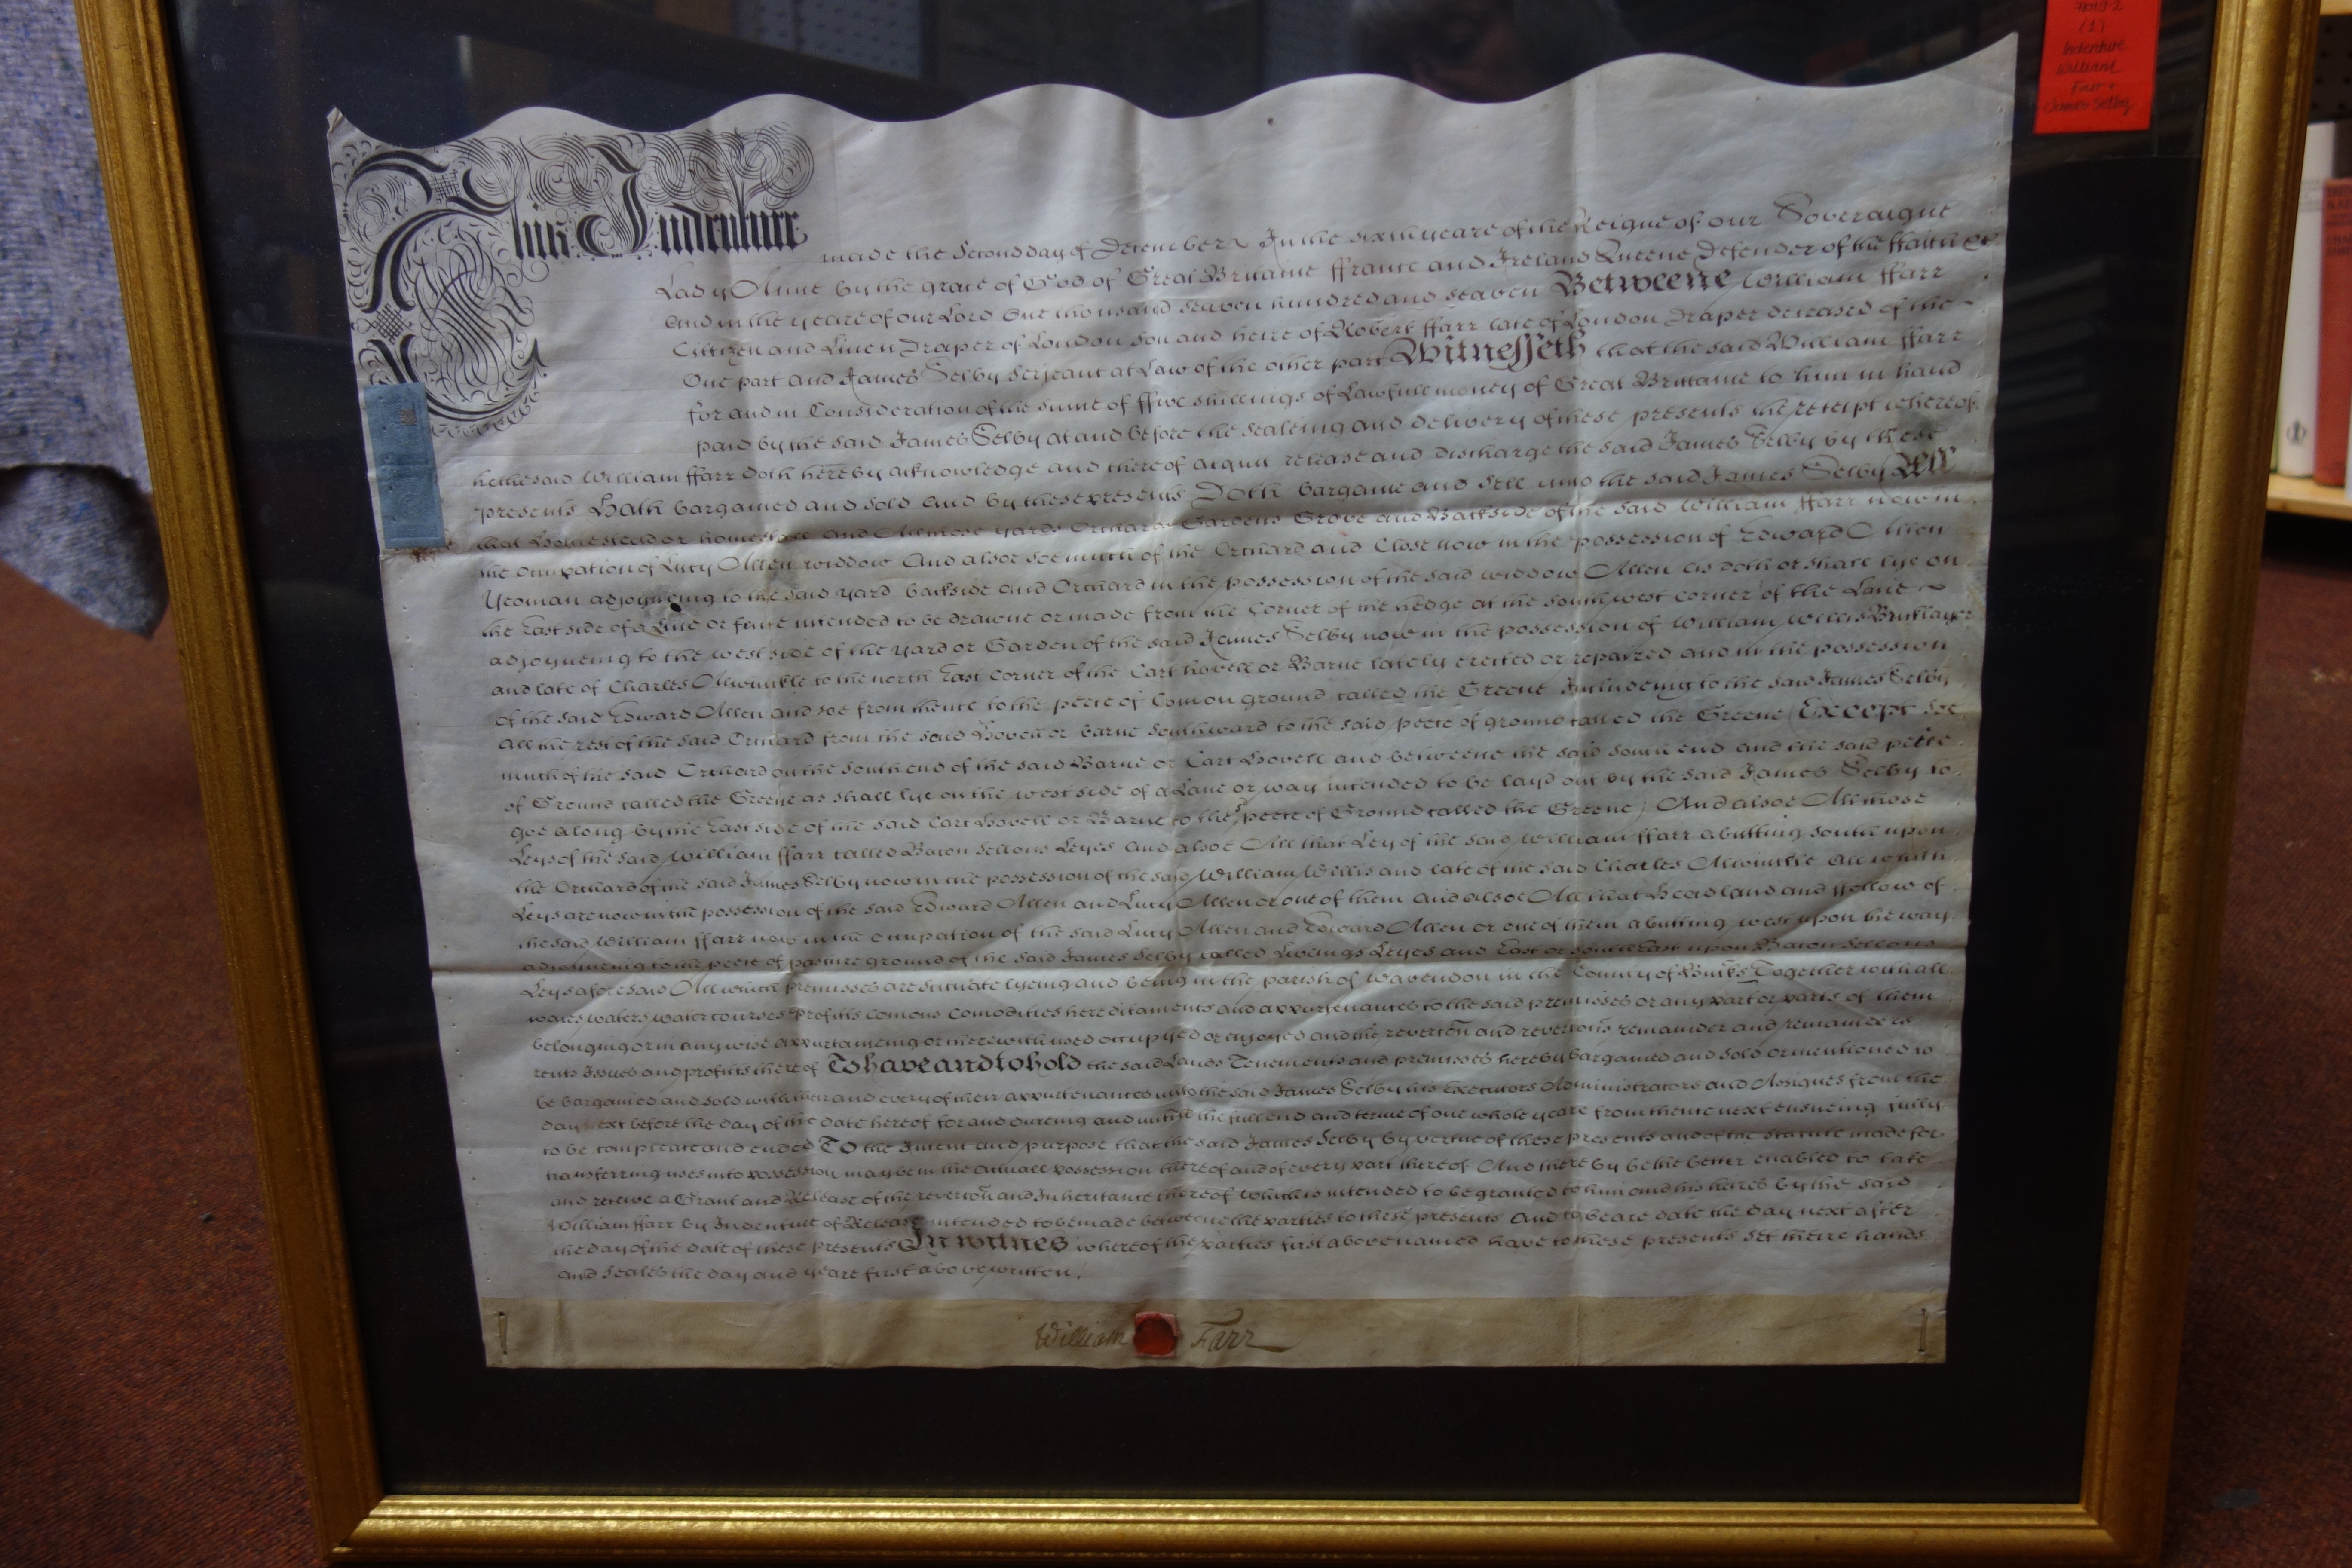 This Indenture
made the Second day of December In the sixth yeare of the Reigne of our Soveraigne
Lady Anne by the grace of God of Great Brittaine ffrance and Ireland Queene Defender of the ffaith &c
And in the yeare of our Lord One thousand seaven hundred and seaven Betweene William ffarr
Cittizen and Linen Draper of London son and heire of Robert ffarr late of London Draper deceased of the
One part and James Selby Serjeant at Law of the other part Witnesseth that the said William ffarr
for and in Consideration of the sume of ffive shillings of Lawfull money of Great Brittaine to him in hand
paid by the said James Selby at and before the sealeing and delivery of these presents the receipt whereof
he the said William ffarr Doth hereby acknowledge and thereof acquit release and discharge the said James Selby by these
presents Hath bargained and sold and by these presents Doth bargaine and sell unto the said James Selby All
that Homestead or homestall and All those yards Orchards Gardens Grove and Backside of the said William ffarr now in
the Occupation of Lucy Allen widdow And alsoe soe much of the Orchard and Close now in the possession of Edward Allen
Yeoman adjoyneing to the said yard backside and Orchard in the possession of the said widdow Allen as doth or shall lye on
the East side of a Line or fence intended to be drawne or made from the Corner of the hedge at the southwest corner of the Lane
adjoyneing to the west side of the yard or Garden of the said James Selby now in the possession of William Willis Bricklayer
and late of Charles Allwinckle to the north East corner of the Cart hovell or Barne lately erected or repaired and in the possession
of the said Edward Allen and soe from thence to the peece of Comon ground called the Greene Includeing to the said James Selby
All the rest of the said Orchard from the said Hovell or barne Southward to the said peece of ground called the Greene (Except soe
much of the said Orchard on the South end of the said Barne or Cart Hovell and betweene the said South end and the said peece
of Ground called the Greene as shall lye on the west side of a Lane or way intended to be layd out by the said James Selby to
goe along by the East side of the said Cart Hovell or Barne to the sd peece of Ground called the Greene) And alsoe All those
Leys of the said William ffarr called Bacon Sellons Leyes And alsoe All that Ley of the said William ffarr abutting South upon
the Orchard of the said James Selby now in the possession of the said William Willis and late of the said Charles Allwinckle All which
Leys are now in the possession of the said Edward Allen and Lucy Allen or one of them And alsoe All that Headland and ffollow of
the said William ffarr now in the Occupation of the said Lucy Allen and Edward Allen or one of them abutting west upon the way
adjoineing to the peece of pasture ground of the said James Selby called Leyes and East or South East upon Bacon Sellons
Leys aforesaid All which premisses are scituate lyeing and being in the parish of Wavendon in the County of Bucks Together with all
waies waters watercourses profitts comons comodities hereditaments and appurtenances to the said premisses or any part or parts of them
belonging or in anywise appurtaineing or therewith used occupyed or enjoyed and the revercon and revercons remainder and remainders
rents Issues and profitts thereof To have and to hold the said Lands Tenements and premisses hereby bargained and sold or mentioned to
be bargained and sold with their and every of their appurtenances unto the said James Selby his Executors Administrators and Assignes from the
day next before the day of the date hereof for and dureing and untill the full end and terme of one whole yeare from thence next ensueing fully
to be compleate and ended To the Intent and purpose that the said James Selby by vertue of these presents and of the Statute made for
transferring uses into possession may be in the actuall possession thereof and of every part thereof And thereby be the better enabled to take
and receive a Grant and Release of the revercon and Inheritance thereof which is intended to be granted to him and his heires by the said
William ffarr by Indenture of Release intended to be made betweene the parties to these presents And to beare date the day next after
the day of the date of these presents In witnes whereof the parties first above named have to these presents set theire hands
and Seales the day and yeare first above written.
William Farr
(1)
Indenture
William
Farr +
James Selby